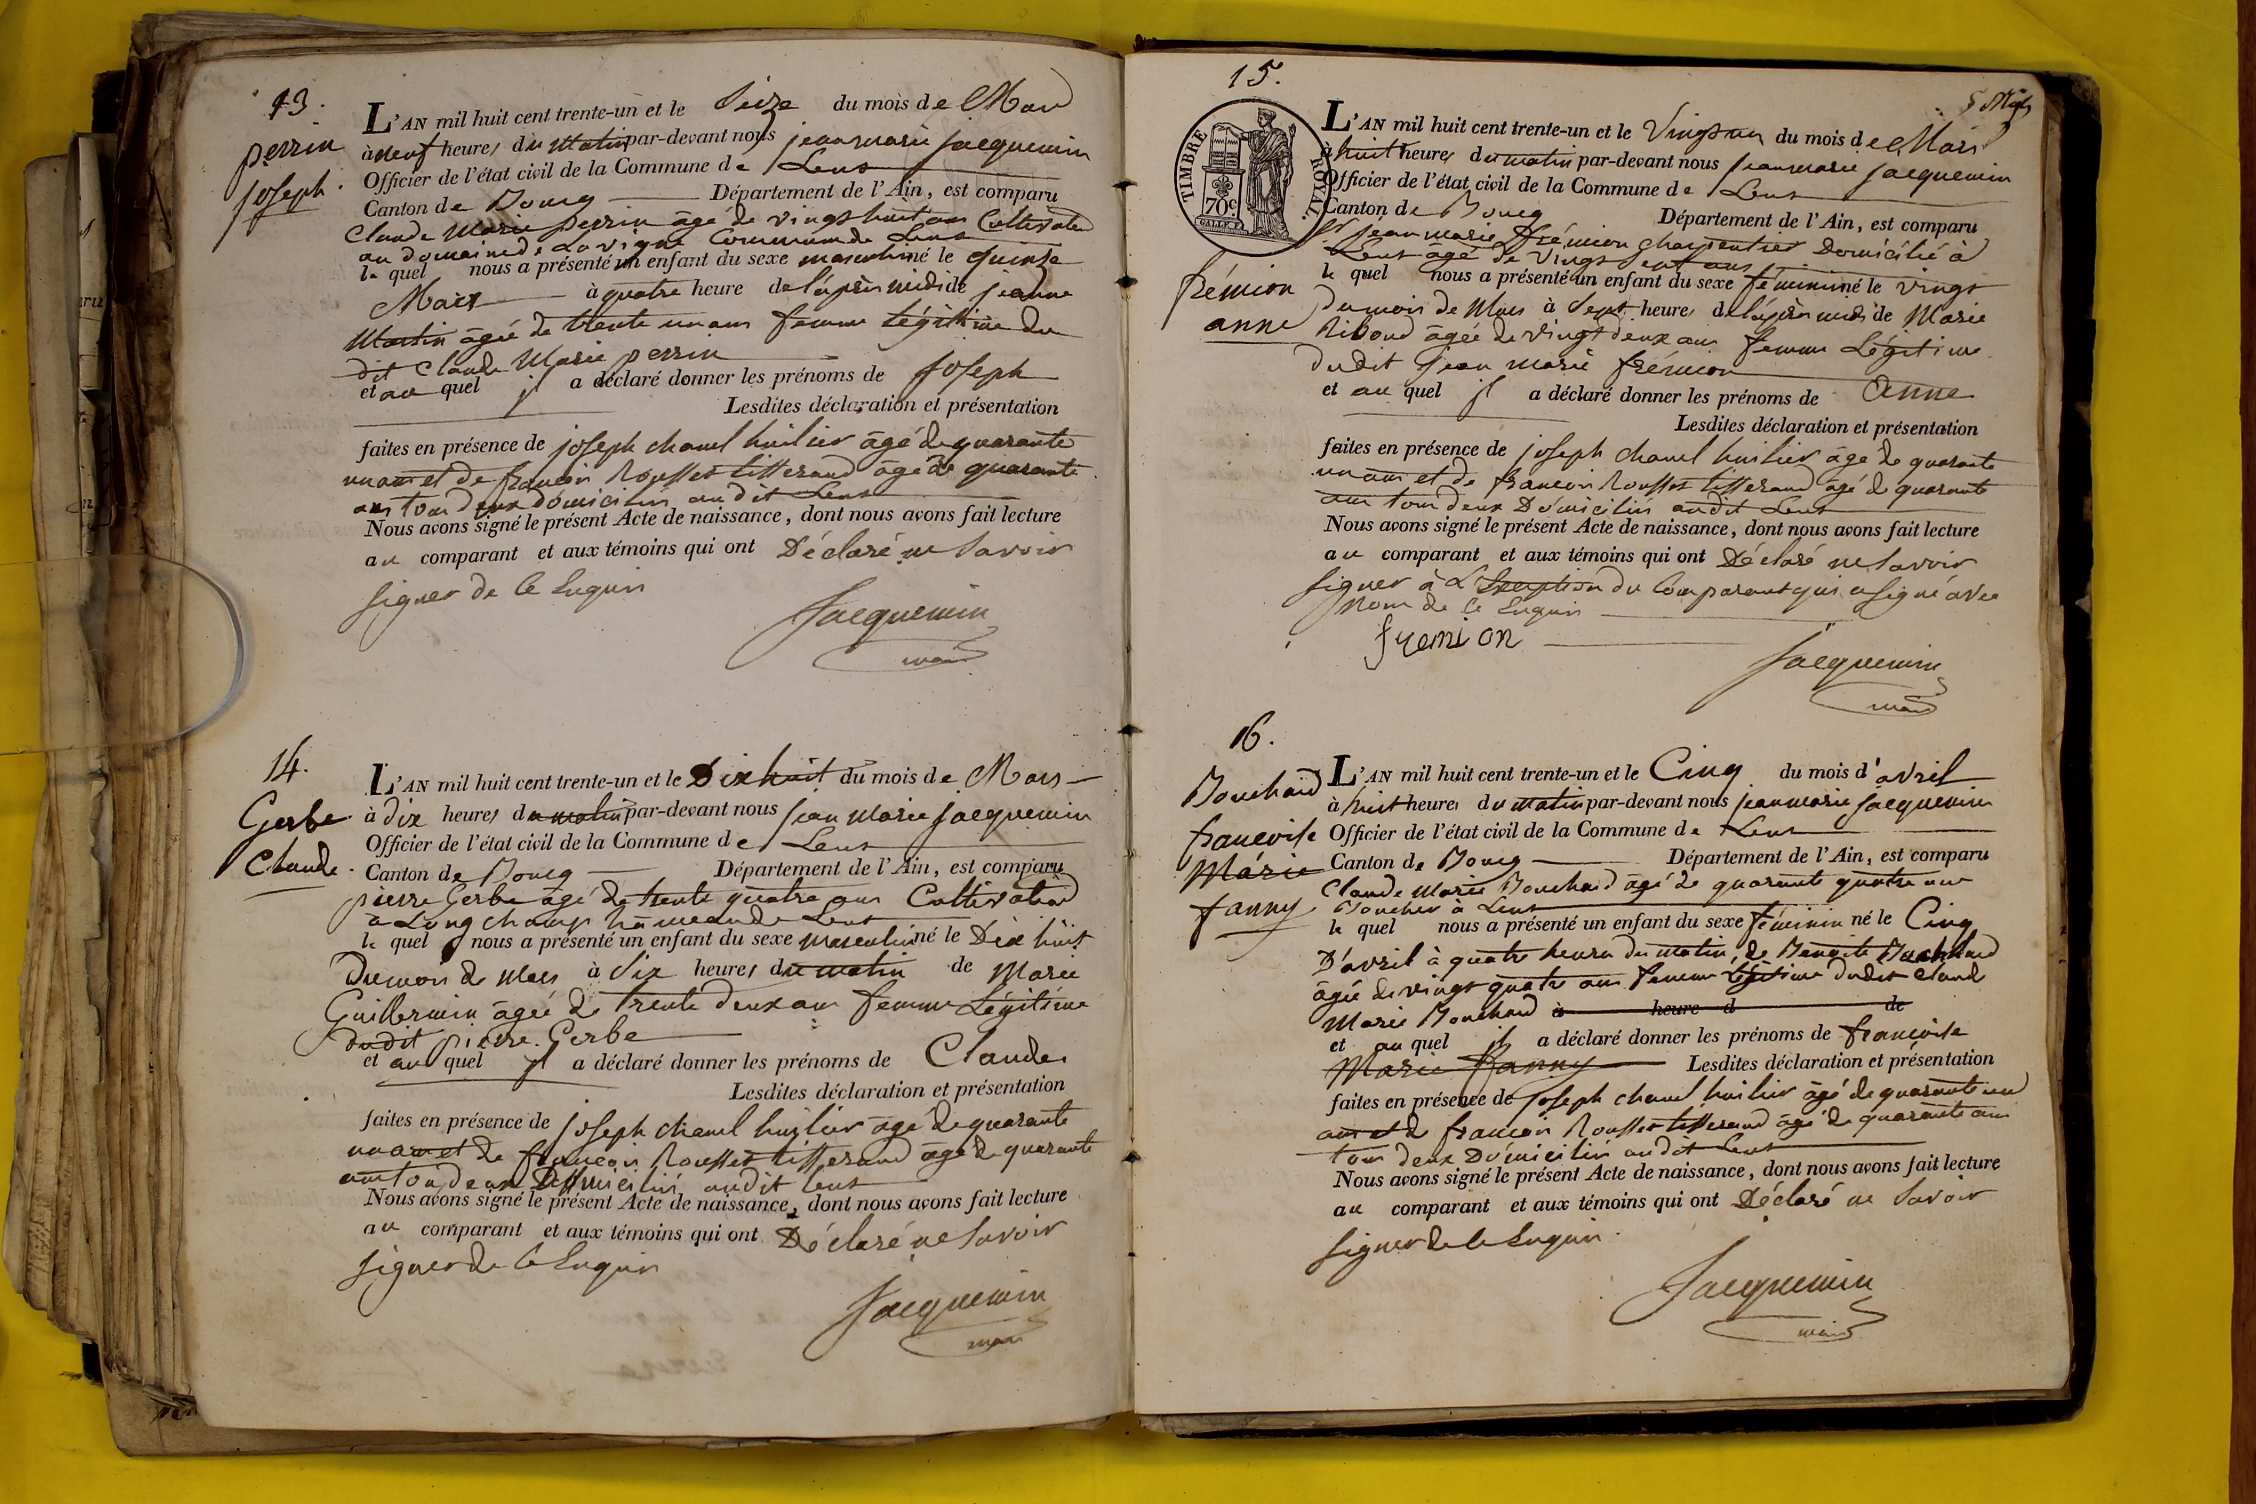 13.
perrin
joseph.
L'AN mil huit cent trente-un et le Seize du mois de Mars
à neuf heures du matin par-devant nous jean marie jacquemin
Officier de l'état civil de la Commune de Lent
Canton de Bourg Département de l'Ain, est comparu
Claude Marie perrin âgé de vingt huit ans Cultivateur
au domaine de Lavigne Commune de Lent
le quel nous a présenté un enfant du sexe masculin né le quinze
Mars à quatre heure de l'après midi de jeanne
Martin âgée de trente un ans femme légitime du
dit Claude Marie perrin
et au quel il a déclaré donner les prénoms de joseph
Lesdites déclaration et présentation
faites en présence de joseph chanel huilier âgé de quarante
un ans et de françois Rousset tisserand âgé de quarante
ans tous deux Domiciliés audit Lent
Nous avons signé le présent Acte de naissance, dont nous avons fait lecture
au comparant et aux témoins qui ont Déclaré ne Savoir
signer de ce Enquis
Jacquemin
maire
14.
Gerbe
Claude.
L'AN mil huit cent trente-un et le Dix huit du mois de Mars
à dix heures du matin par-devant nous jean marie jacquemin
Officier de l'état civil de la Commune de Lent
Canton de Bourg Département de l'Ain, est comparu
pierre Gerbe âgé de trente quatre ans Cultivateur
à Longchamp hameau de Lent
le quel nous a présenté un enfant du sexe masculin né le Dix huit
Du mois de Mars à Six heures du matin de Marie
Guillermin âgée de trente deux ans femme Légitime
dudit pierre Gerbe
et au quel il a déclaré donner les prénoms de Claude
Lesdites déclaration et présentation
faites en présence de joseph chanel huilier âgé de quarante
un ans et de françois Rousset tisserand âgé de quarante
ans tous deux Domiciliés audit Lent
Nous avons signé le présent Acte de naissance, dont nous avons fait lecture
au comparant et aux témoins qui ont Déclaré ne Savoir
signer de ce Enquis
Jacquemin
maire
15.
TIMBRE ROYAL.
70c
frémion
anne
L'AN mil huit cent trente-un et le Vingt un du mois de Mars
à huit heures du matin par-devant nous jean marie jacquemin
Officier de l'état civil de la Commune de Lent
Canton de Bourg Département de l'Ain, est comparu
Sr jean marie frémion charpentier Domicilié à
Lent âgé de vingt sept ans
le quel nous a présenté un enfant du sexe féminin né le vingt
du mois de Mars à Sept heures de l'après midi de Marie
Riboud âgée de vingt deux ans femme Légitime
dudit jean marie frémion
et au quel il a déclaré donner les prénoms de anne
Lesdites déclaration et présentation
faites en présence de joseph chanel huilier âgé de quarante
un ans et de françois Rousset tisserand âgé de quarante
ans tous deux Domiciliés audit Lent
Nous avons signé le présent Acte de naissance, dont nous avons fait lecture
au comparant et aux témoins qui ont Déclaré ne Savoir
signer à L'Exception du Comparant qui a signé avec
Nous de ce Enquis
fremion
Jacquemin
maire
16.
Bouchard
françoise
Marie
fanny
L'AN mil huit cent trente-un et le Cinq du mois d'avril
à huit heures du matin par-devant nous jean marie jacquemin
Officier de l'état civil de la Commune de Lent
Canton de Bourg Département de l'Ain, est comparu
Claude Marie Bouchard âgé de quarante quatre ans
Boucher à Lent
le quel nous a présenté un enfant du sexe féminin né le Cinq
D'avril à quatre heures du matin, de Benoite Bouchard
âgée de vingt quatre ans femme légitime dudit Claude
Marie Bouchard à heure d de
et au quel il a déclaré donner les prénoms de françoise
Marie fanny Lesdites déclaration et présentation
faites en présence de joseph chanel huilier âgé de quarante un
ans et de françois Rousset tisserand âgé de quarante ans
tous deux Domiciliés audit Lent
Nous avons signé le présent Acte de naissance, dont nous avons fait lecture
au comparant et aux témoins qui ont Déclaré ne Savoir
signer de ce Enquis.
Jacquemin
maire